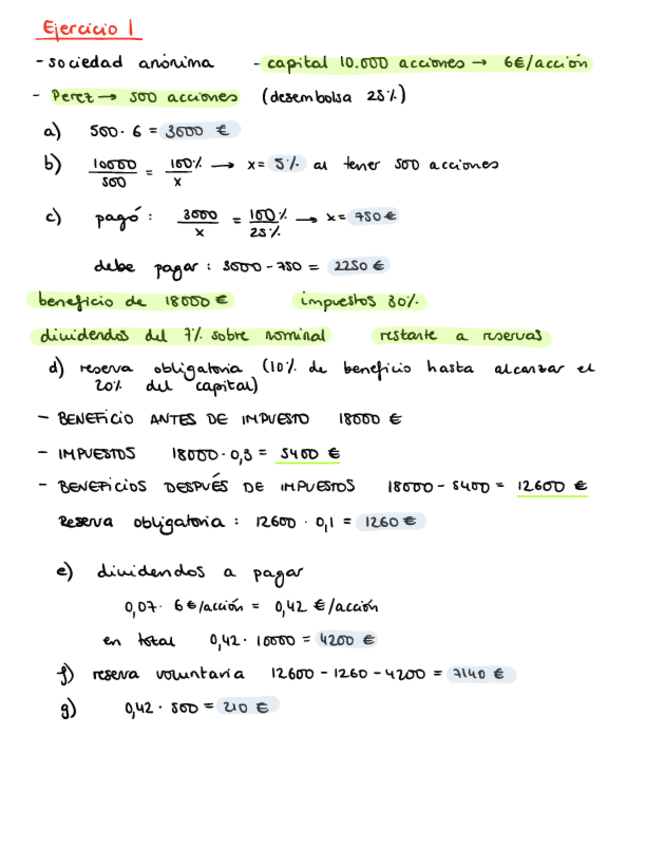 Ejercicio 1
- sociedad anónima - capital 10.000 acciones → 6€/acción
- Perez → 500 acciones (desembolsa 25%)
a) 500 · 6 = 3000 €
b) 10000/500 = 100%/x → x = 5% al tener 500 acciones
c) pagó: 3000/x = 100%/25% → x = 750 €
debe pagar: 3000 - 750 = 2250 €
beneficio de 18000 € impuestos 30%
dividendos del 7% sobre nominal restante a reservas
d) reserva obligatoria (10% de beneficio hasta alcanzar el
20% del capital)
- BENEFICIO ANTES DE IMPUESTO 18000 €
- IMPUESTOS 18000 · 0,3 = 5400 €
- BENEFICIOS DESPUÉS DE IMPUESTOS 18000 - 5400 = 12600 €
Reserva obligatoria: 12600 · 0,1 = 1260 €
e) dividendos a pagar
0,07 · 6€/acción = 0,42 €/acción
en total 0,42 · 10000 = 4200 €
f) reserva voluntaria 12600 - 1260 - 4200 = 7140 €
g) 0,42 · 500 = 210 €